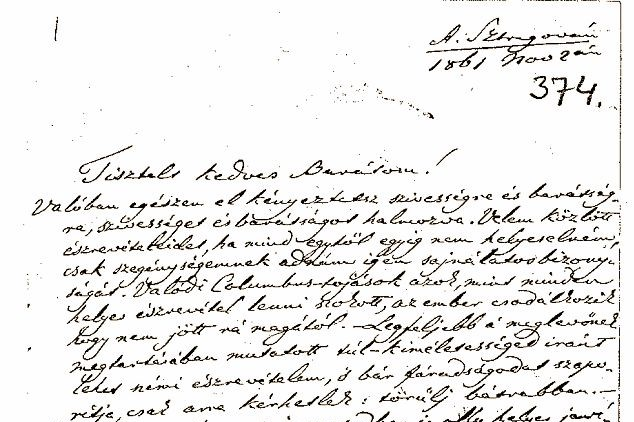 A. Sztregován
1861 Nov 2án
374.
Tisztelt kedves Barátom!
Valóban egészen el kényeztetsz szivességre és barátság-
ra, szivességet és barátságot halmozva. Velem közlött
észrevételeidet, ha mind egytől egyig nem helyeselném,
csak szegénységemnek adnám igen sajnálatos bizonyi-
ságát. Valodi Columbus-tojások azok, mint minden
helyes észrevétel lenni szokott, az ember csodálkozik
hogy nem jött rá magától. – Legfeljebb a meglevőnek
megtartásában mutatott túl-kiméletességed iránt
lehet némi észrevételem, s bár fáradságodat szapo-
ritja, csak arra kérhetlek: törülj bátrabban. –
helyes